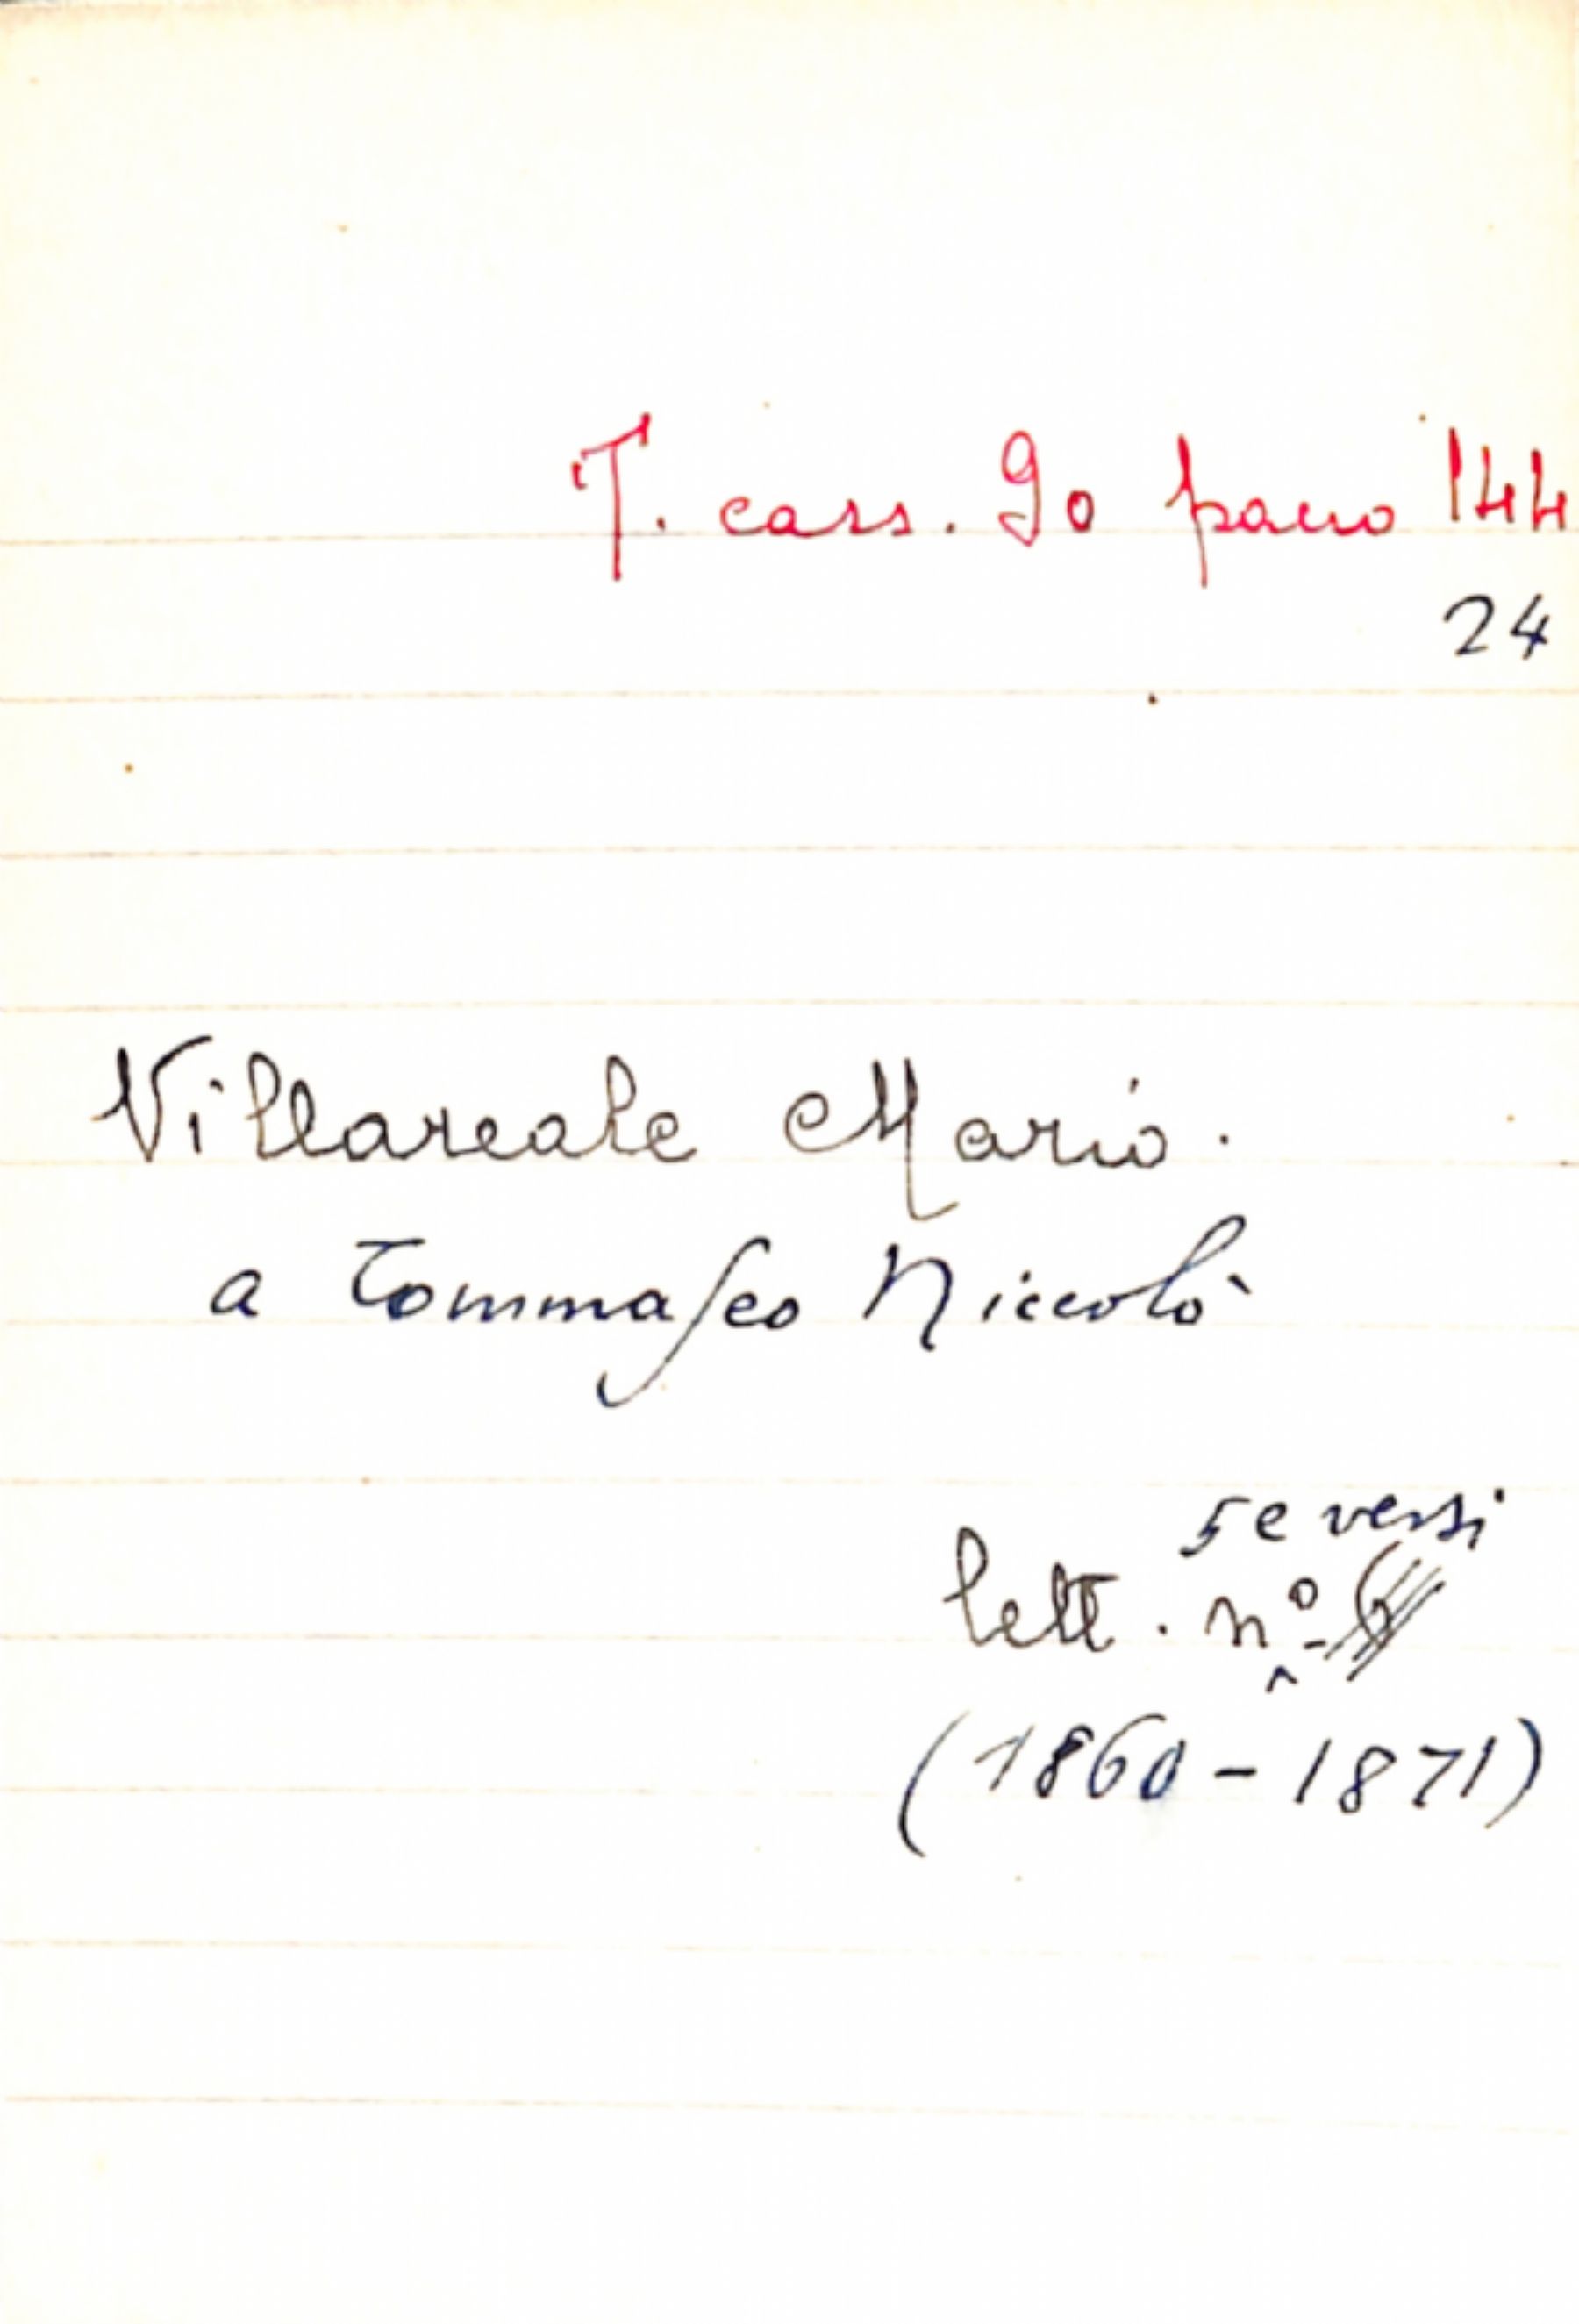 T. cass. 90 pacco 144
24
Villareale Mario.
a Tommaseo Niccolò
5 e versi
lett. nº
(1860-1871)